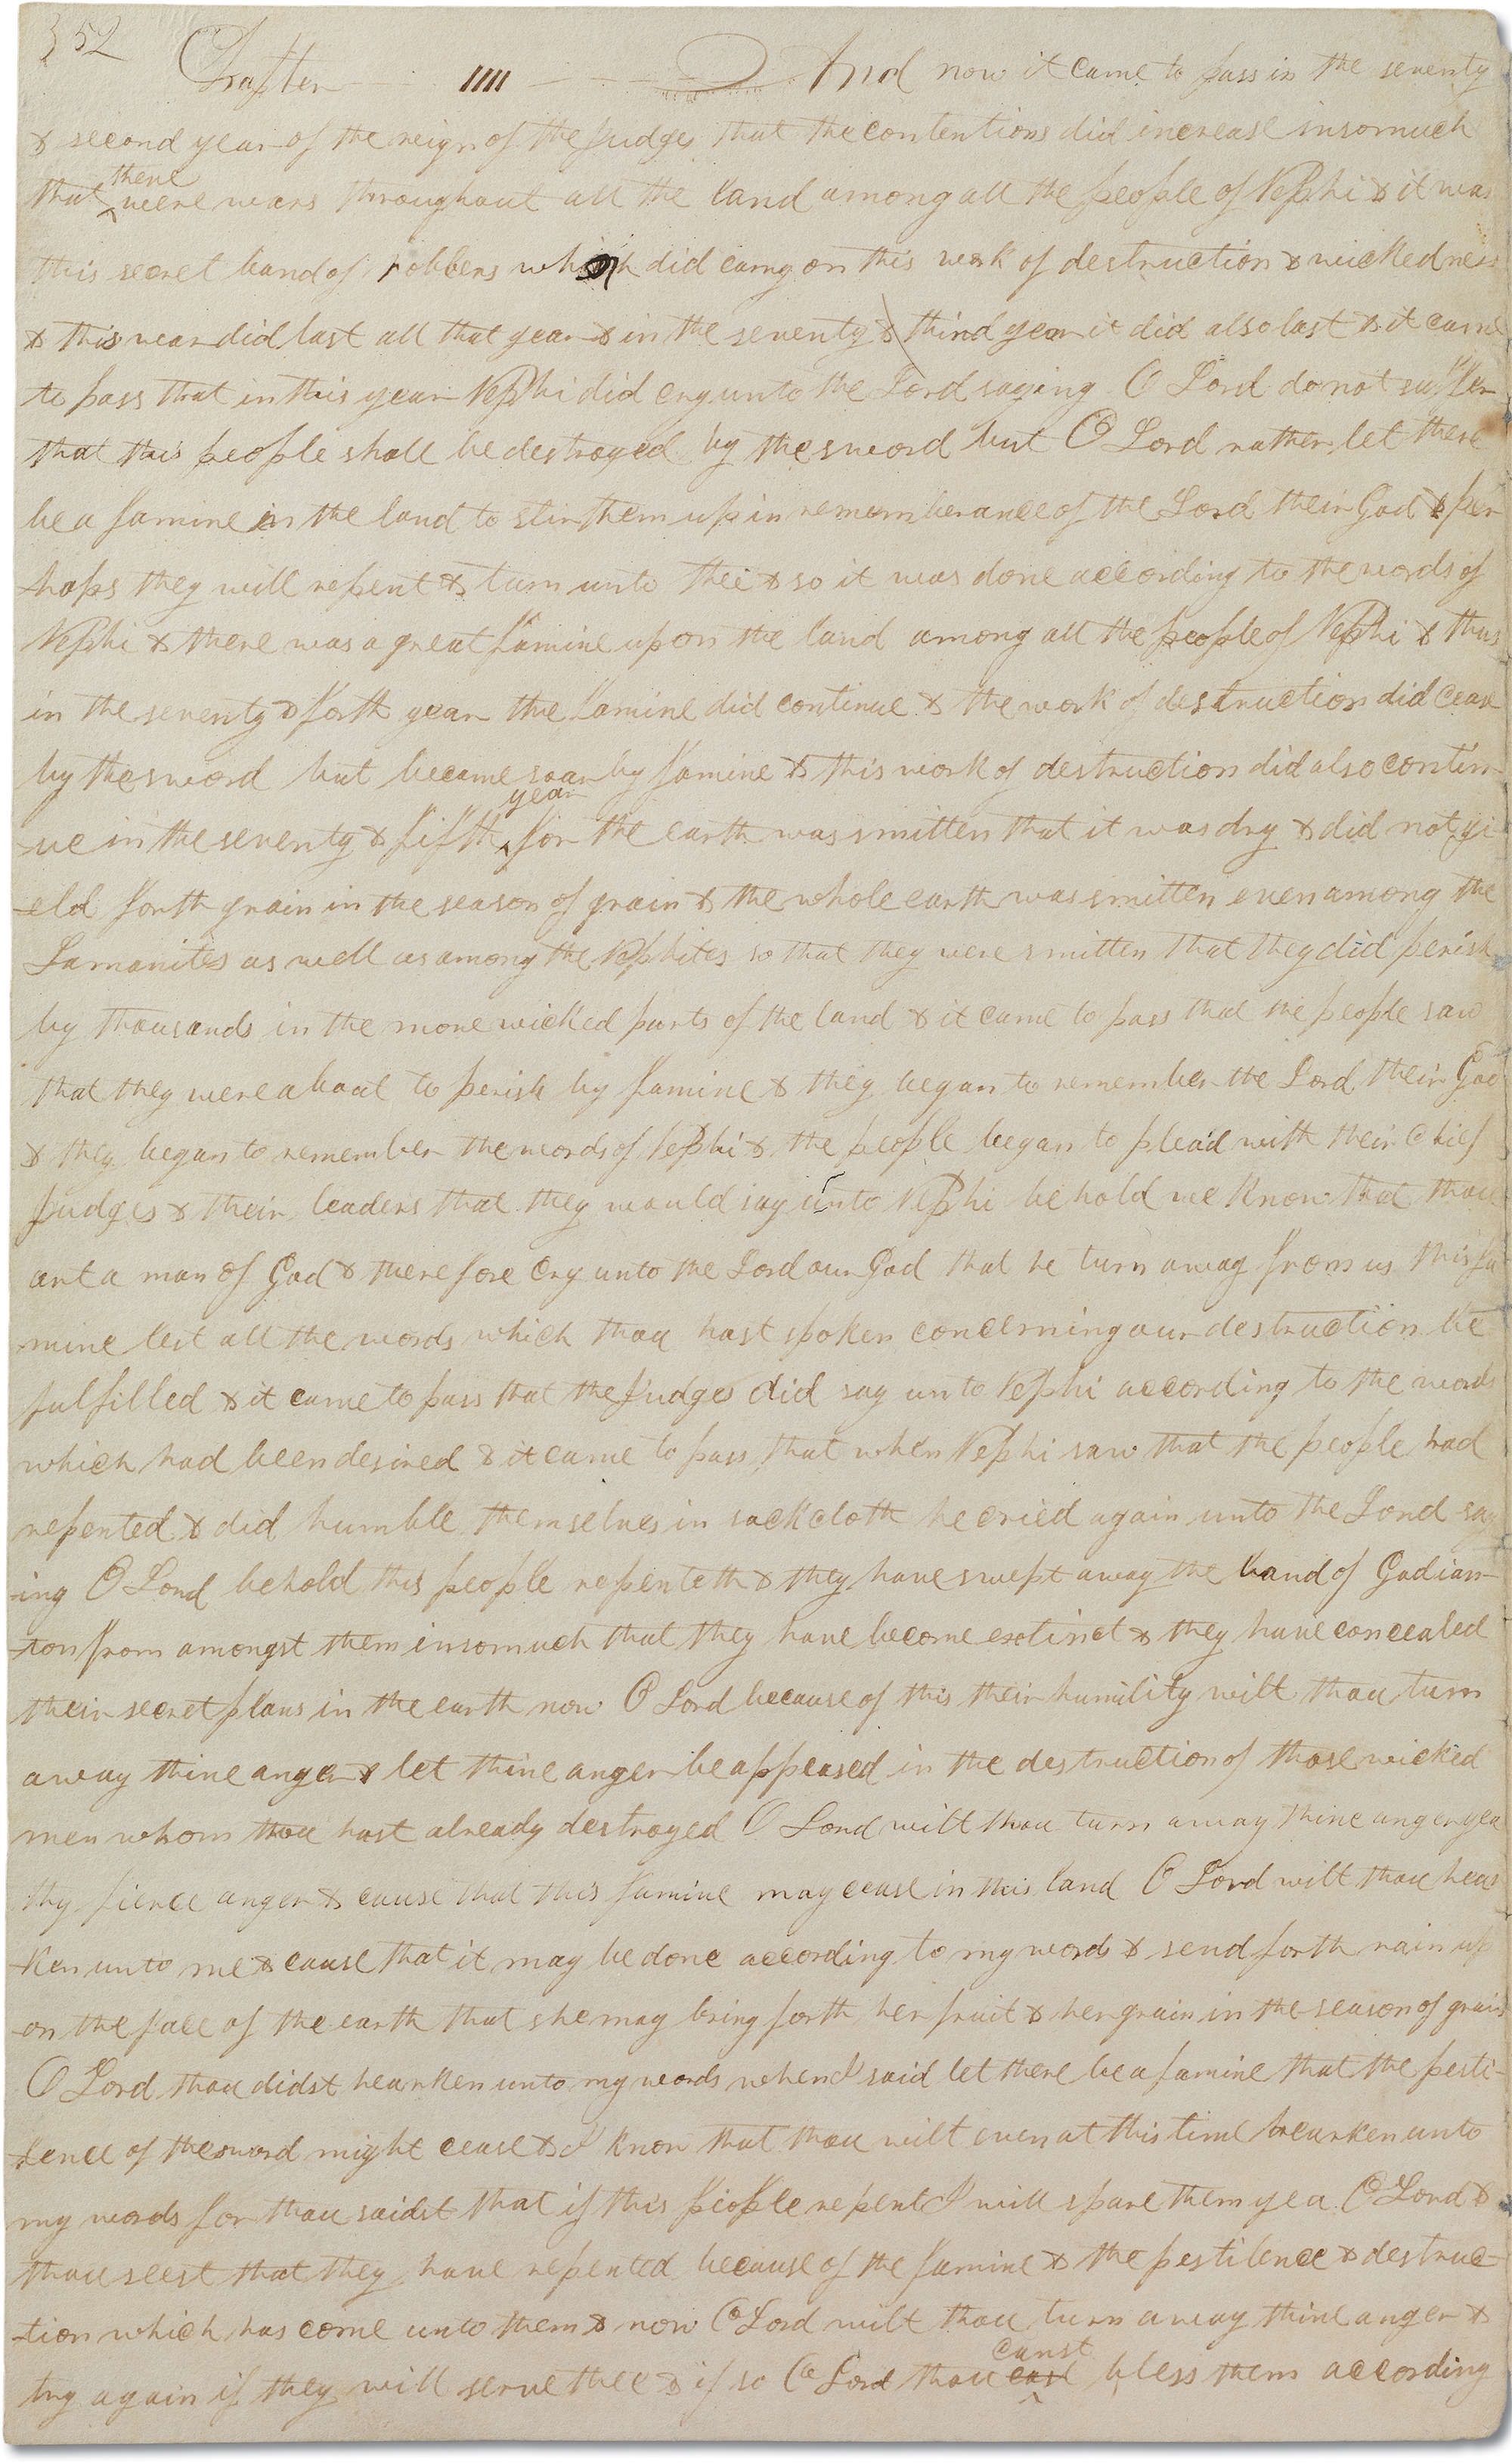 352
Chapter IIII And now it came to pass in the seventy
& second year of the reign of the Judges that the contentions did increase insomuch
there
that were wars throughout all the land among all the people of Nephi & it was
this secret band of robbers which did carry on this work of destruction & wickedness
& this war did last all that year & in the seventy & third year it did also last & it came
to pass that in this year Nephi did cry unto the Lord saying O Lord do not suffer
that this people shall be destroyed by the sword but O Lord rather let there
be a famine in the land to stir them up in rememberance of the Lord their God & per
haps they will repent & turn unto thee & so it was done according to the words of
Nephi & there was a great famine upon the land among all the people of Nephi & thus
in the seventy & forth year the famine did continue & the work of destruction did cease
by the sword but became soar by famine & this work of destruction did also contin
year
-ue in the seventy & fifth for the earth was smitten that it was dry & did not yi
-eld forth grain in the season of grain & the whole earth was smitten even among the
Lamanites as well as among the Nephites so that they were smitten that they did perish
by thousands in the more wicked parts of the land & it came to pass that the people saw
that they were about to perish by famine & they began to remember the Lord their God
& they began to remember the words of Nephi & the people began to plead with their Chief
Judges & their leaders that they would say unto Nephi behold we know that thou
art a man of God & therefore cry unto the Lord our God that he turn away from us this fa
mine lest all the words which thou hast spoken concerning our destruction be
fulfilled & it came to pass that the Judges did say unto Nephi according to the words
which had been desired & it came to pass that when Nephi saw that the people had
repented & did humble themselves in sackcloth he cried again unto the Lord say
-ing O Lord behold this people repenteth & they have swept away the band of Gadian-
-ton from amongst them insomuch that they have become extinct & they have concealed
their secret plans in the earth now O Lord because of this their humility wilt thou turn
away thine anger & let thine anger be appeased in the destruction of those wicked
men whom thou hast already destroyed O Lord wilt thou turn away thine anger yea
thy fierce anger & cause that this famine may cease in this land O Lord wilt thou hear
-ken unto me & cause that it may be done according to my words & send forth rain up
-on the face of the earth that she may bring forth her fruit & her grain in the season of grain
O Lord thou didst hearken unto my words when I said let there be a famine that the pesti-
-lence of the sword might cease & I know that thou wilt even at this time hearken unto
my words for thou saidst that if this people repent I will spare them yea O Lord &
thou seest that they have repented because of the famine & the pestilence & destruc-
-tion which has come unto them & now O Lord wilt thou turn away thine anger &
canst
try again if they will serve thee & if so O Lord thou can bless them according